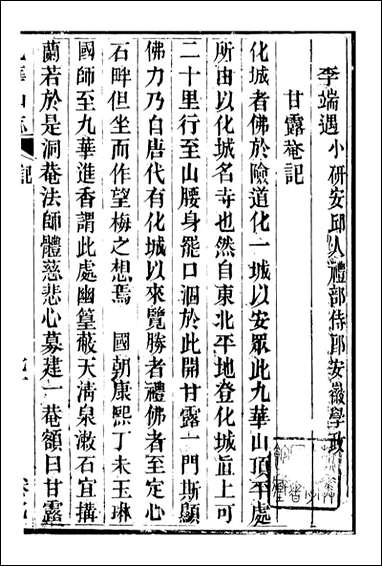 李端遇小研安邱人禮部侍郎安徽學政
甘露菴記
化城者佛於險道化一城以安眾此九華山頂平處
所由以化城名寺也然自東北平地登化城直上可
二十里行至山腰身罷口涸於此開甘露一門斯顯
佛力乃自唐代有化城以來覽勝者禮佛者至定心
石畔但坐而作望梅之想焉 國朝康熙丁未玉琳
國師至九華進香謂此處幽篁蔽天清泉漱石宜搆
蘭若於是洞菴法師體慈悲心募建一菴額曰甘露
華山志
記